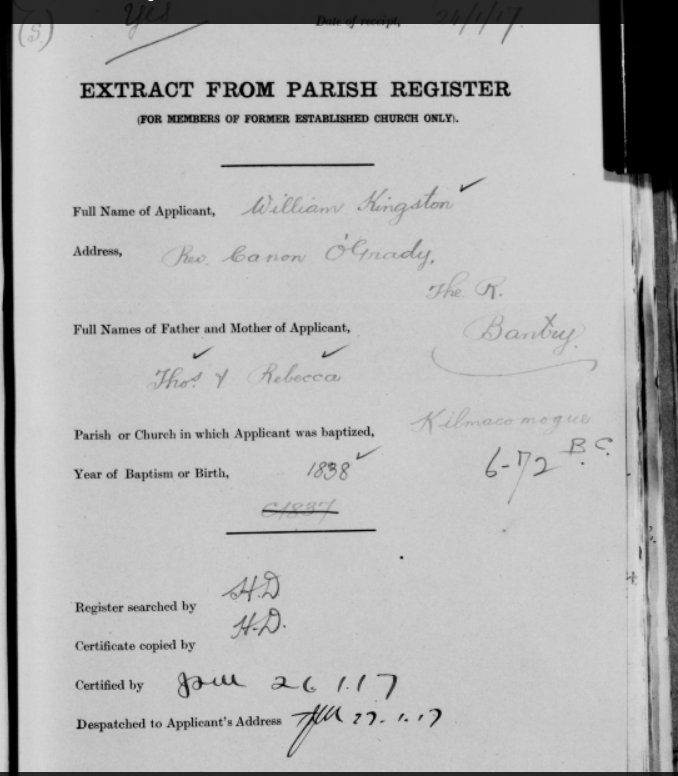 (S.) Yes
Date of receipt, 24/1/17.
EXTRACT FROM PARISH REGISTER
(FOR MEMBERS OF FORMER ESTABLISHED CHURCH ONLY).
Full Name of Applicant, William Kingston
Address, Rev. Canon O'Grady.
The R.
Bantry.
Full Names of Father and Mother of Applicant,
Thos. & Rebecca
Parish or Church in which Applicant was baptized, Kilmacomogue
Year of Baptism or Birth, 1838 6-72 B.C.
C1837
Register searched by H.D
Certificate copied by H.D.
Certified by 26 1.17
Despatched to Applicant's Address 27.1.17